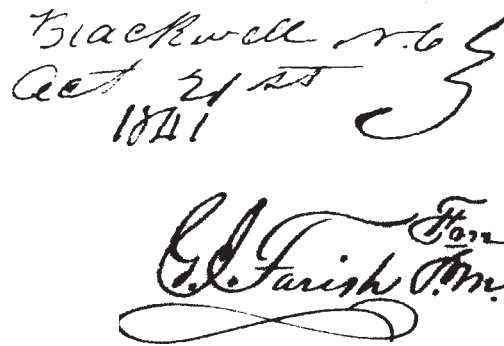 Blackwell N.C
Oct 21st
1841
Free
G.I. Farish P.M.